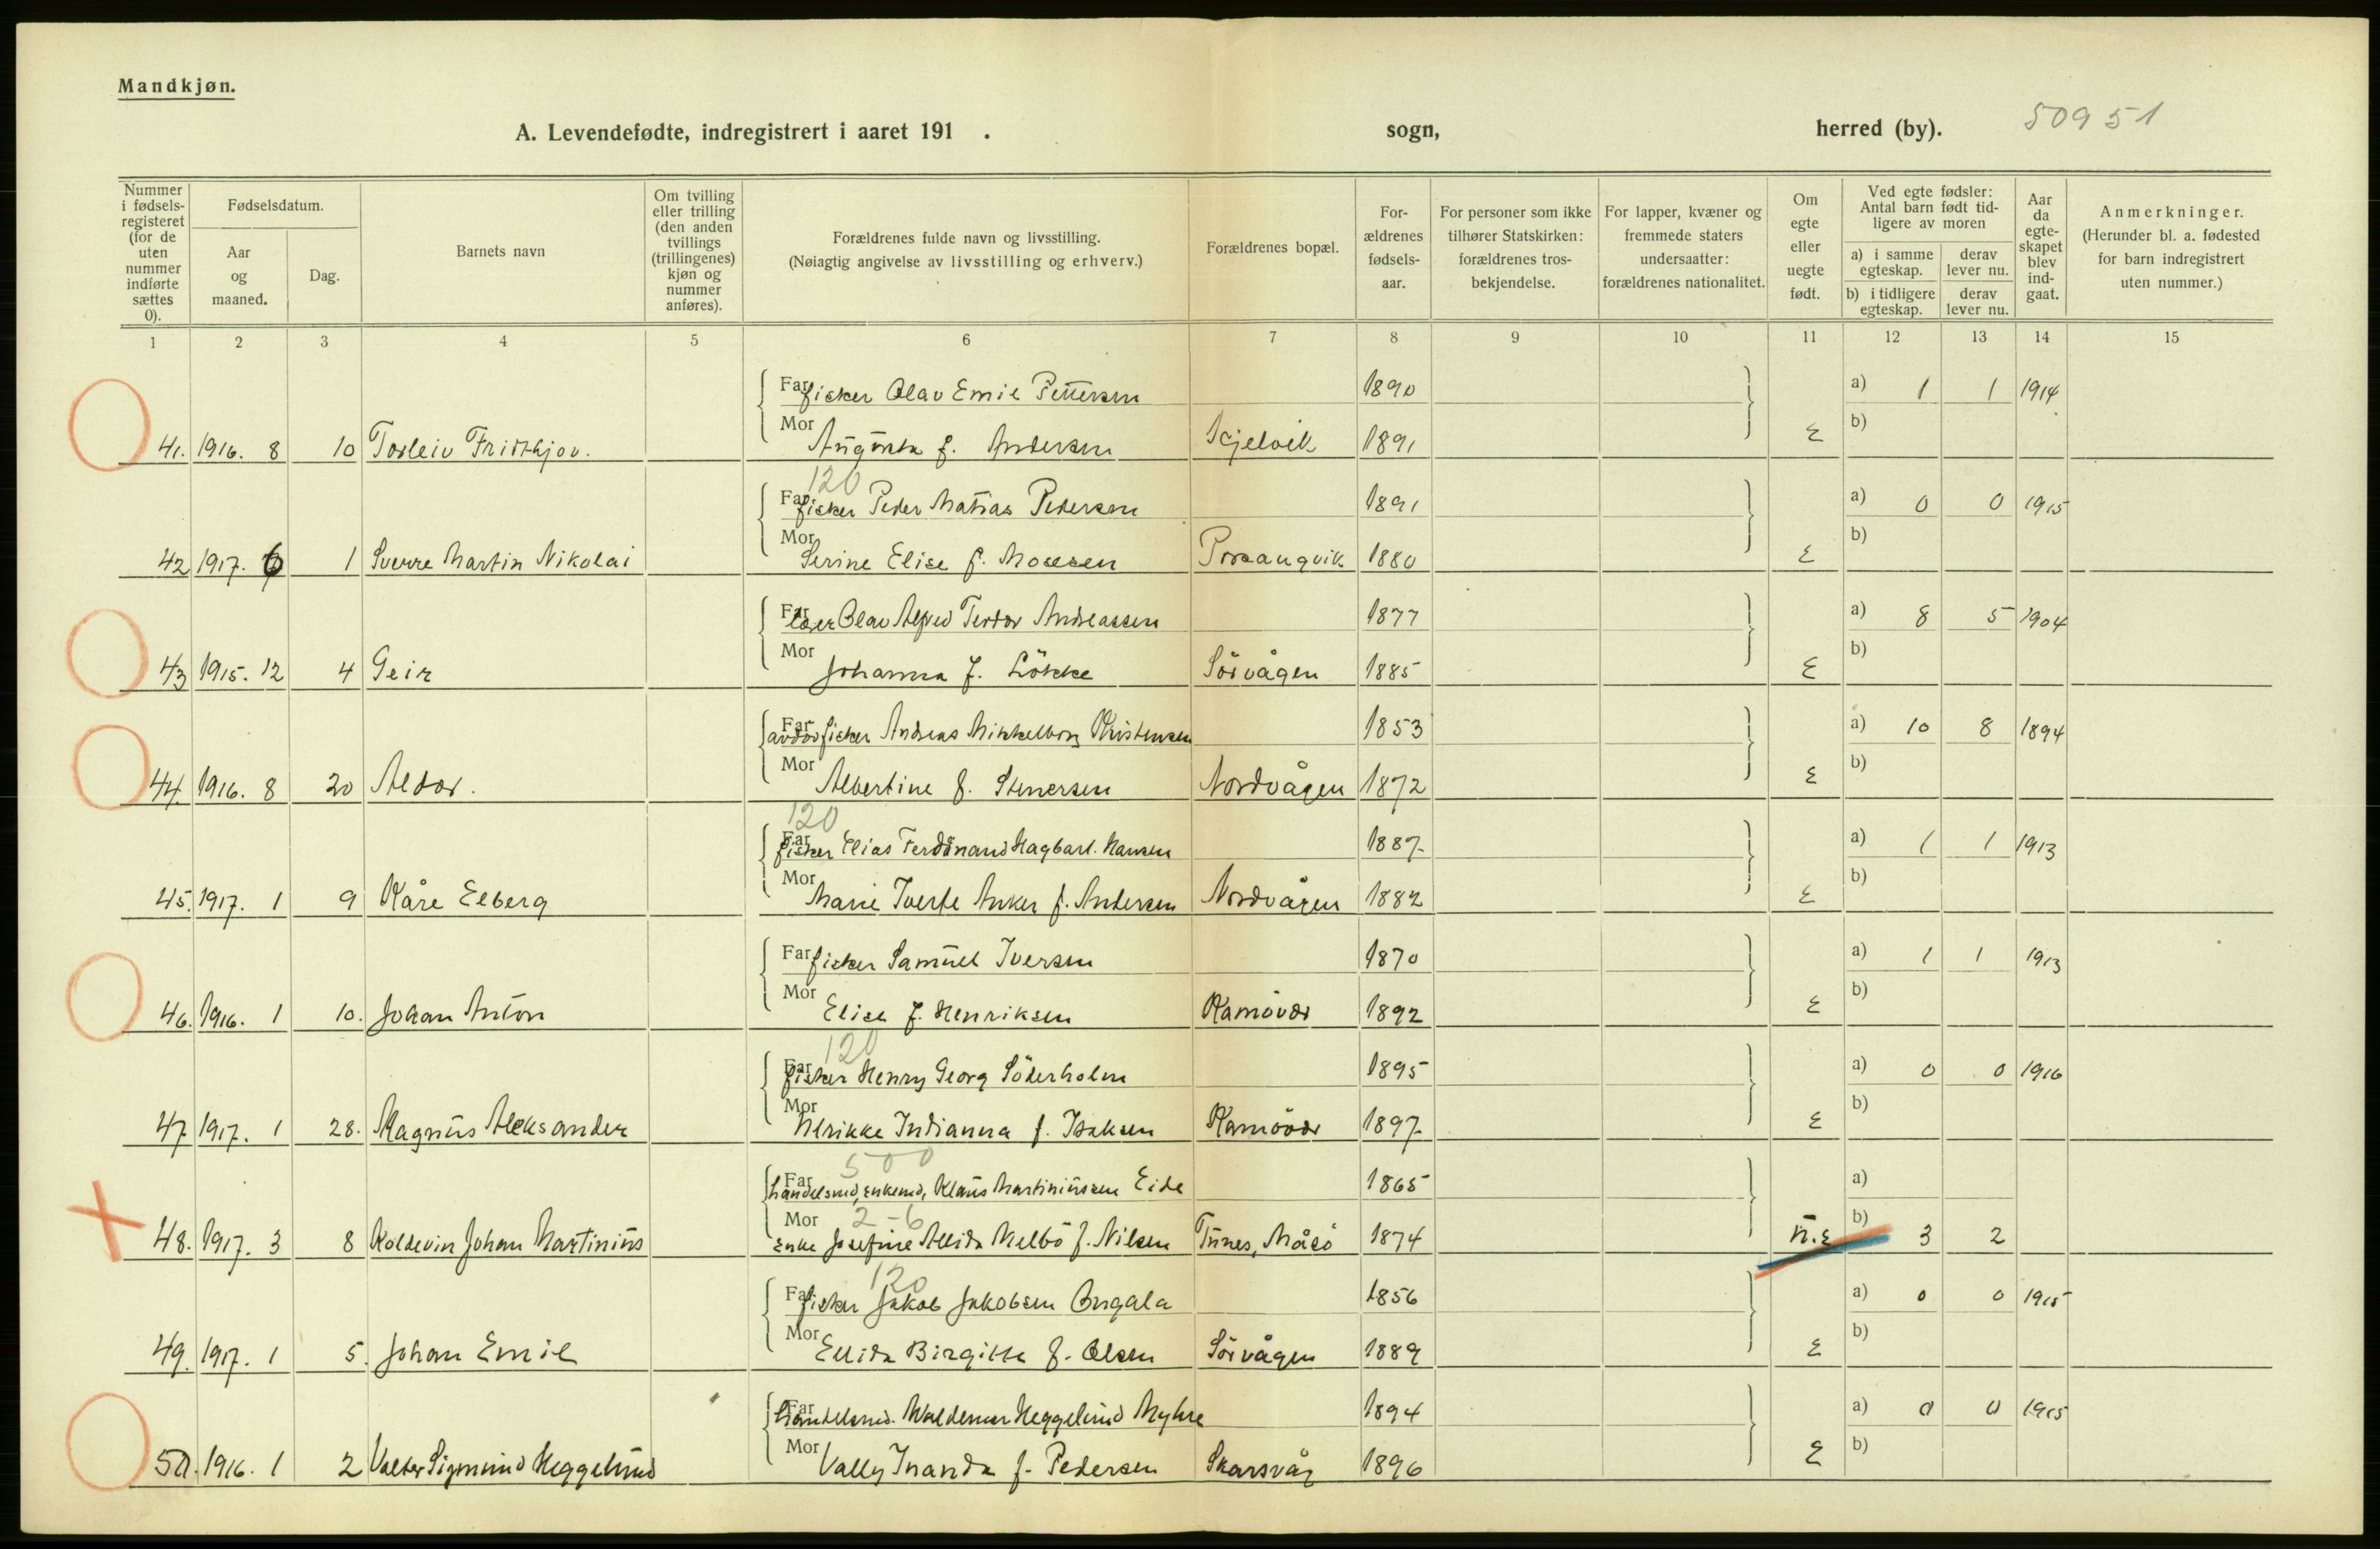 Mandkjøn.
A. Levendefødte, indregistrert i aaret 191 . sogn, herred (by). 50951
Nummer i fødselsregisteret (for de uten nummer indførte sættes 0).
Fødselsdatum.
Aar og maaned.
Dag.
Barnets navn
Om tvilling eller trilling (den anden tvillings (trillingenes) kjøn og nummer anføres).
Forældrenes fulde navn og livsstilling.
(Nøiagtig angivelse av livsstilling og erhverv.)
Forældrenes bopæl.
Forældrenes fødselsaar.
For personer som ikke tilhører Statskirken: forældrenes trosbekjendelse.
For lapper, kvæner og fremmede staters undersaatter: forældrenes nationalitet.
Om egte eller uegte født.
Ved egte fødsler: Antal barn født tidligere av moren
a) i samme egteskap. derav lever nu.
b) i tidligere egteskap. derav lever nu.
Aar da egteskapet blev indgaat.
Anmerkninger.
(Herunder bl. a. fødested for barn indregistrert uten nummer.)
1 2 3 4 5 6 7 8 9 10 11 12 13 14 15
Far fisker Olav Emil Pettersen 1890 a) 1 1 1914
41. 1916. 8 10 Torleiv Fridthjov. Mor Augusta f. Andersen 1891 E b)
120
Far fisker Peder Matias Pedersen 1891 a) 0 0 1915
42 1917. 6 1 Sverre Martin Nikolai Mor Serine Elise f. Mosesen Porsangvik 1880 E b)
Far Olav Alfred Teodor Andreassen 1877 a) 8 5 1904
43 1915. 12 4 Geir Mor Johanna f. Løkke Sörvågen 1885 E b)
Far fisker Andreas Mikkelborg Kristensen 1853 a) 10 8 1894
44. 1916. 8 20 Aldor. Mor Albertine f. Stenersen Nordvågen 1872 E b)
120
Far fisker Elias Ferdinand Hagbart. Hansen 1887. a) 1 1 1913
45. 1917. 1 9 Kåre Elberg Mor Marie Anker f. Andersen Nordvågen 1882 E b)
Far fisker Samuel Iversen 1870 a) 1 1 1913
46. 1916. 1 10. Johan Anton Mor Elise f. Henriksen Kamövær 1892 E b)
120
Far fisker Henry Georg Söderholm 1895 a) 0 0 1916
47 1917. 1 28. Magnus Aleksander Mor Ulrikke Indianna f. Isaksen Kamövær 1897. E b)
500
Far handelsmd, enkemd, Klaus Martiniussen Eide 1865 a)
2-6
48. 1917. 3 8 Koldevin Johan Martinius Mor Enke Josefine Allida Melbö f. Nilsen Tunes, Måsö 1874 U.E b) 3 2
120
Far fisker Jakob Jakobsen 1856 a) 0 0 1915
49. 1917. 1 5. Johan Emil Mor Ellida Birgitte f. Olsen Sörvågen 1889 E b)
Far handelsmd. Waldemar Heggelund Myhre 1894 a) 0 0 1915
50. 1916. 1 2 Valter Sigmund Heggelund Mor Vally Inanda f. Pedersen Skarsvåg 1896 E b)